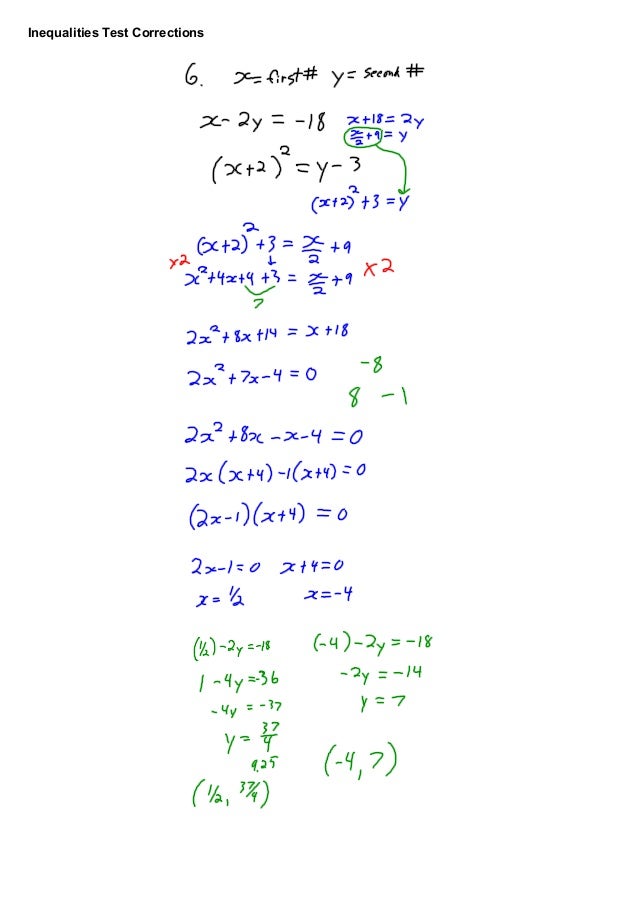 Inequalities Test Corrections
6. x=first# y=second #
x-2y = -18 x+18=2y
x/2+9=y
(x+2)²=y-3
(x+2)²+3=y
(x+2)²+3=x/2+9
x2 x²+4x+4+3=x/2+9 x2
7
2x²+8x+14=x+18
2x²+7x-4=0 -8
8 -1
2x²+8x-x-4=0
2x(x+4)-1(x+4)=0
(2x-1)(x+4)=0
2x-1=0 x+4=0
x=1/2 x=-4
(1/2)-2y=-18
1-4y=-36
-4y=-37
y=37/4
9.25
(1/2, 37/4)
(-4)-2y=-18
-2y=-14
y=7
(-4,7)